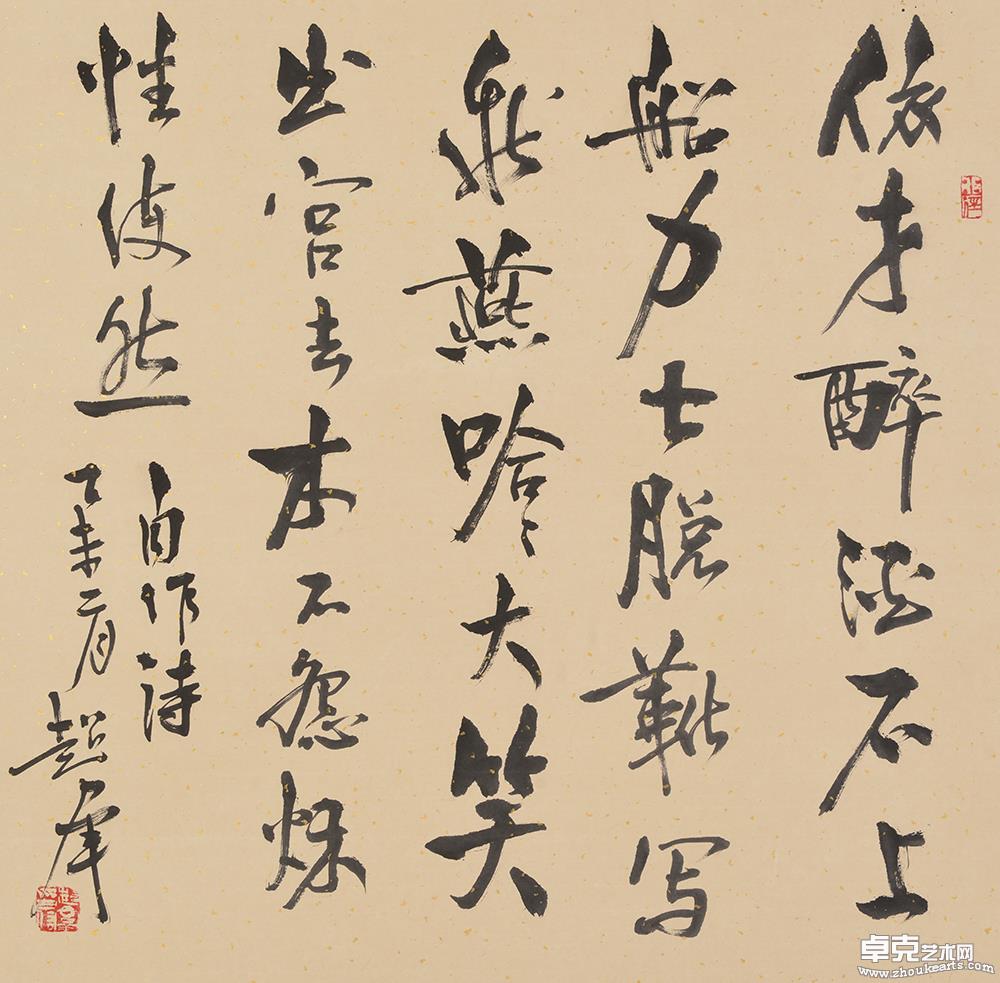 依才醉酒不上
船力士脱靴写
飛燕哈〻大笑
出宫去本不
性使然
自作诗
乙未二月超军
卓克艺术网
www.zhoukearts.com